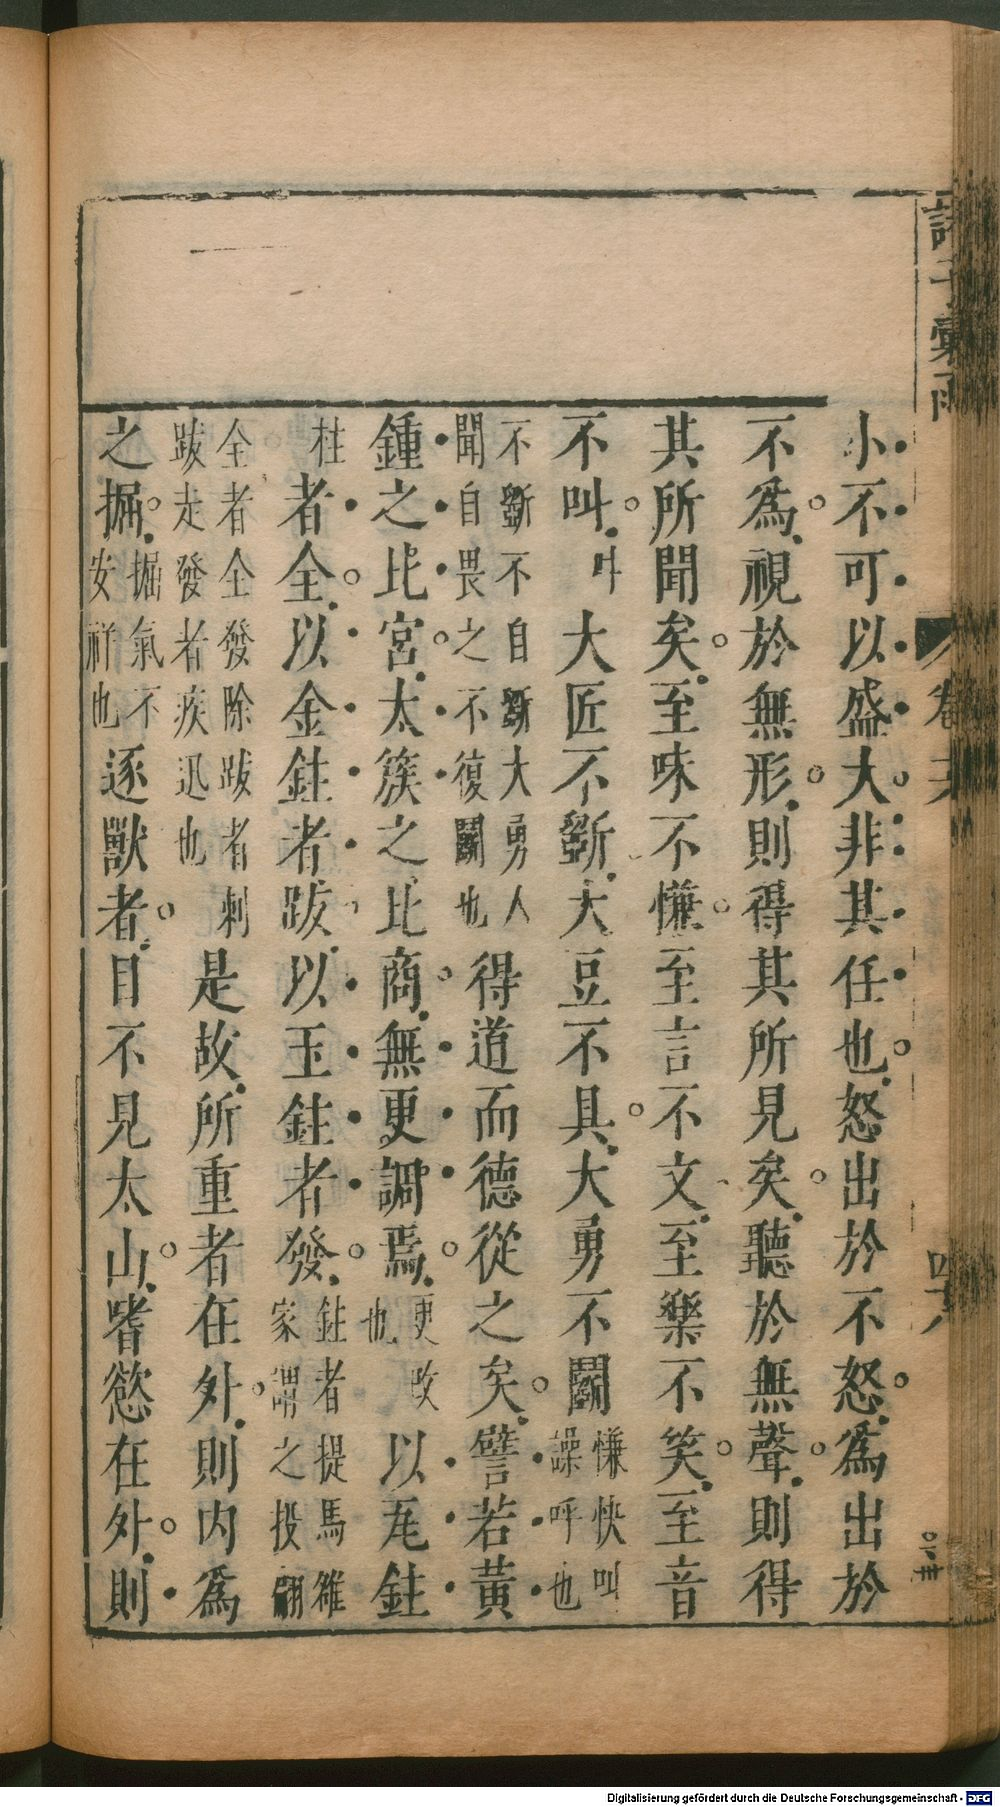 小不可以盛大非其任也怒出於不怒爲出於
不爲視於無形則得其所見矣聽於無聲則得
其所聞矣至味不慊至言不文至樂不笑至音
不叫叫大匠不斵大豆不具大勇不鬭慊快叫譟呼也
不斵不自斵大勇人聞自畏之不復鬭也得道而德從之矣譬若黃
鍾之比宮太簇之比商無更調焉更改也以瓦鉒
者全以金鉒者跋以玉鉒者發鉒者提馬雒家謂之投翩
柱
全者全發除跋者刺跋走發者疾迅也是故所重者在外則内爲
之掘掘氣不安祥也逐獸者目不見太山嗜慾在外則
卷
Digitalisierung gefördert durch die Deutsche Forschungsgemeinschaft - DFG